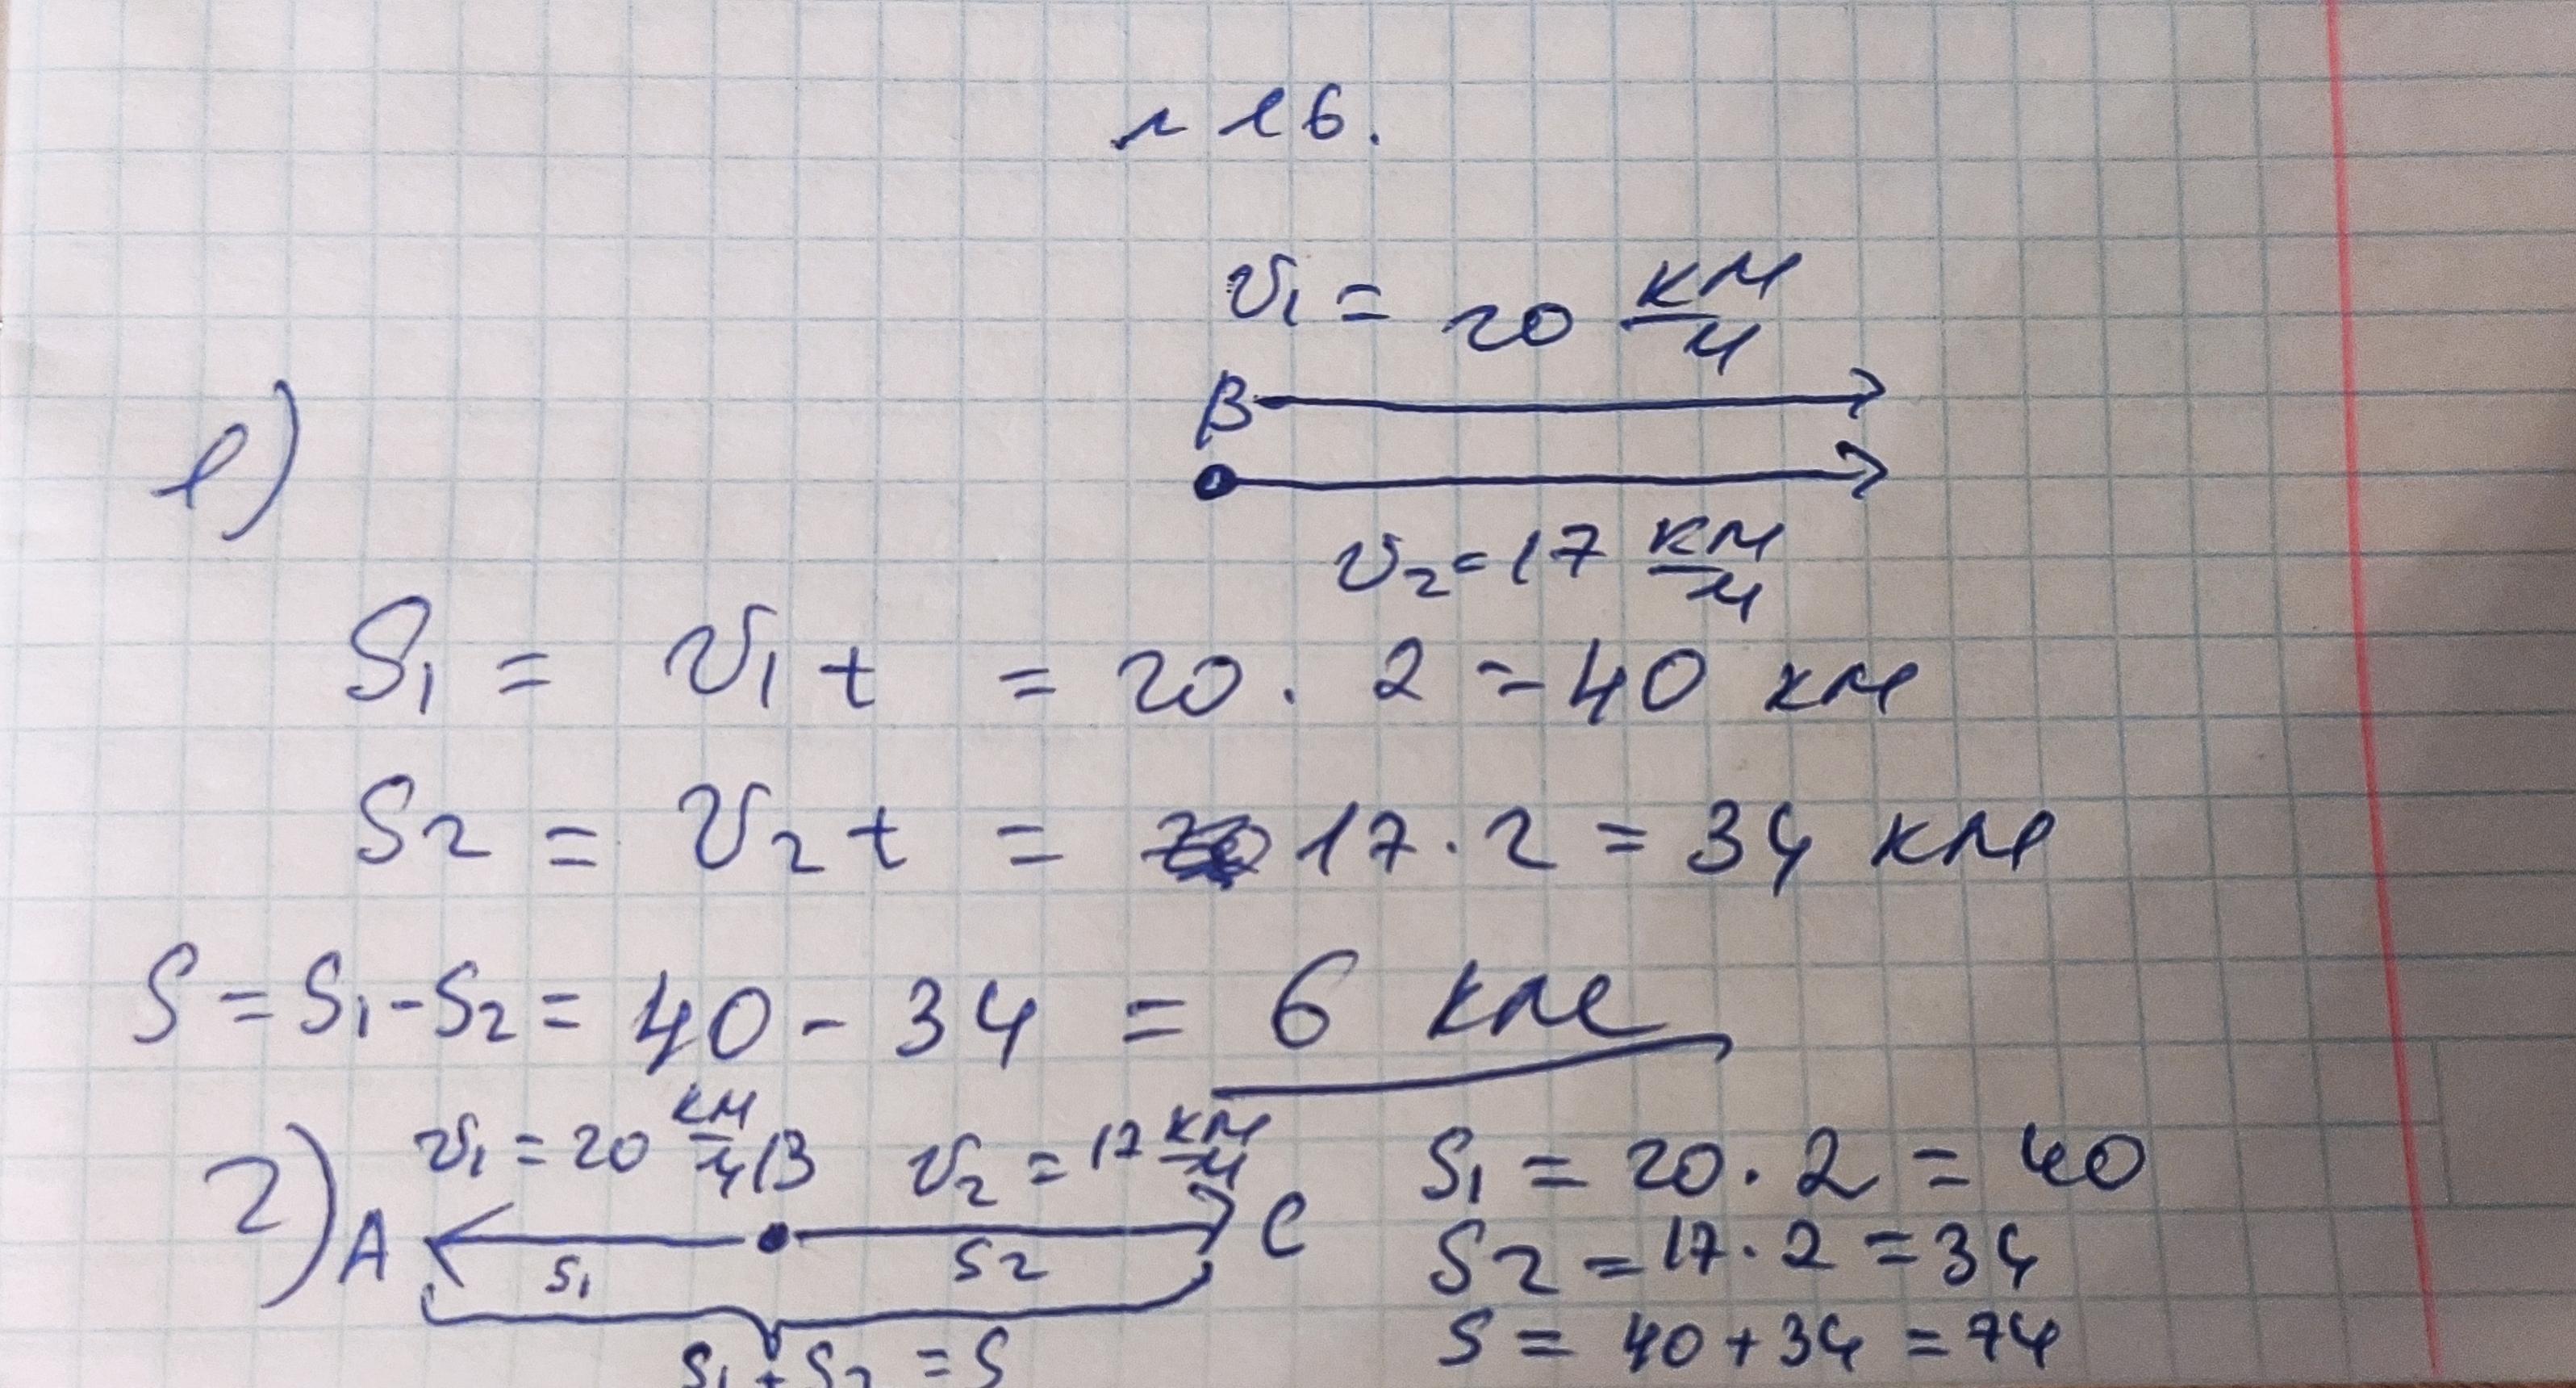 № 16.
v₁ = 20 км/ч
B
1)
v₂ = 17 км/ч
S₁ = v₁t = 20 · 2 = 40 км
S₂ = v₂t = 17 · 2 = 34 км
S = S₁ - S₂ = 40 - 34 = 6 км
2) v₁ = 20 км/ч B v₂ = 17 км/ч
A S₁ S₂ C
S₁ + S₂ = S
S₁ = 20 · 2 = 40
S₂ = 17 · 2 = 34
S = 40 + 34 = 74